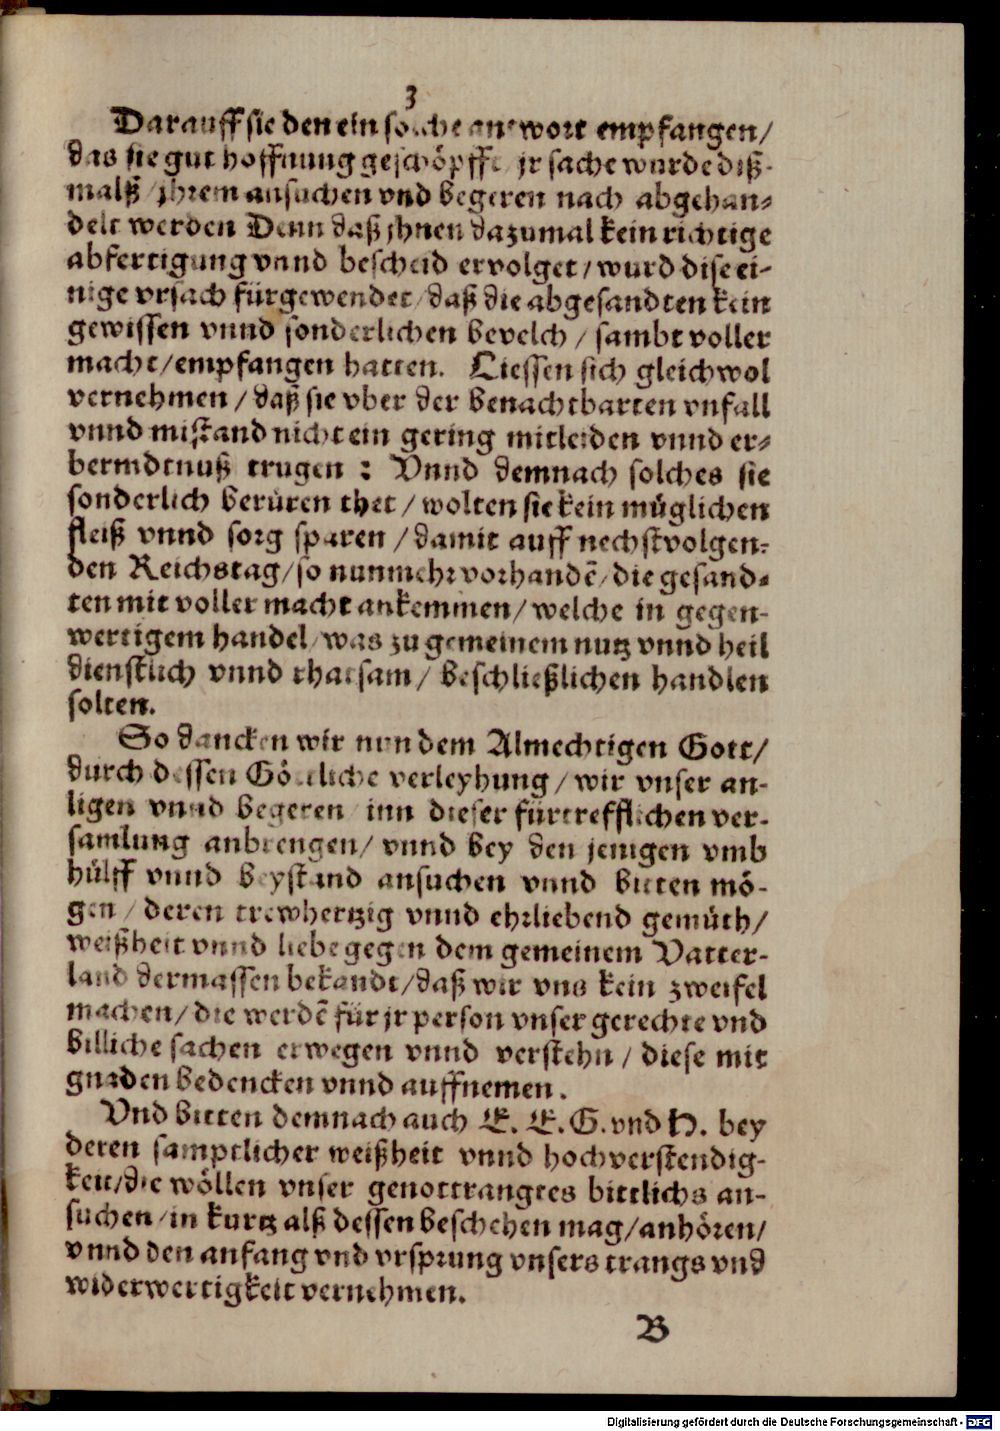 3
Darauff sie den ein solche antwort empfangen/
das sie gut hoffnung geschöpfft jr sache wurde diß-
malß/jhrem ansuchen vnd begeren nach abgehan-
delt werden Denn daß jhnen dazumal kein richtige
abfertigung vnnd bescheid ervolget/wurd dise ei-
nige vrsach fürgewendet/daß die abgesandten kein
gewissen vnnd sonderlichen bevelch/sambt voller
macht/empfangen hatten. Liessen sich gleichwol
vernehmen/daß sie vber der benachtbarten vnfall
vnnd mistand nicht ein gering mitleiden vnnd er-
bermdtnuß trugen : Vnnd demnach solches sie
sonderlich berüren thet/wolten sie kein müglichen
fleiß vnnd sorg sparen/damit auff nechstvolgen-
den Reichstag/so nunmehr vorhandẽ/die gesand-
ten mit voller macht ankemmen/welche in gegen-
wertigem handel/was zu gemeinem nutz vnnd heil
dienstlich vnnd rhatsam/beschließlichen handlen
solten.
So dancken wir nun dem Almechtigen Gott/
durch dessen Göttliche verleyhung/wir vnser an-
ligen vnnd begeren inn dieser fürtrefflichen ver-
samlung anbrengen/vnnd bey den jenigen vmb
hülff vnnd beystand ansuchen vnnd bitten mö-
gen/deren trewhertzig vnnd ehrliebend gemüth/
weißheit vnnd liebe gegen dem gemeinem Vatter-
land dermassen bekandt/daß wir vns kein zweifel
machen/die werdẽ für jr person vnser gerechte vnd
billiche sachen erwegen vnnd verstehn/diese mit
gnaden bedencken vnnd auffnemen.
Vnd bitten demnach auch E. E. G. vnd H. bey
deren samptlicher weißheit vnnd hochverstendig-
keit/die wöllen vnser genottrangtes bittlichs an-
suchen/in kurtz alß dessen beschehen mag/anhören/
vnnd den anfang vnd vrsprung vnsers trangs vnd
widerwertigkeit vernehmen.
B
Digitalisierung gefördert durch die Deutsche Forschungsgemeinschaft - DFG